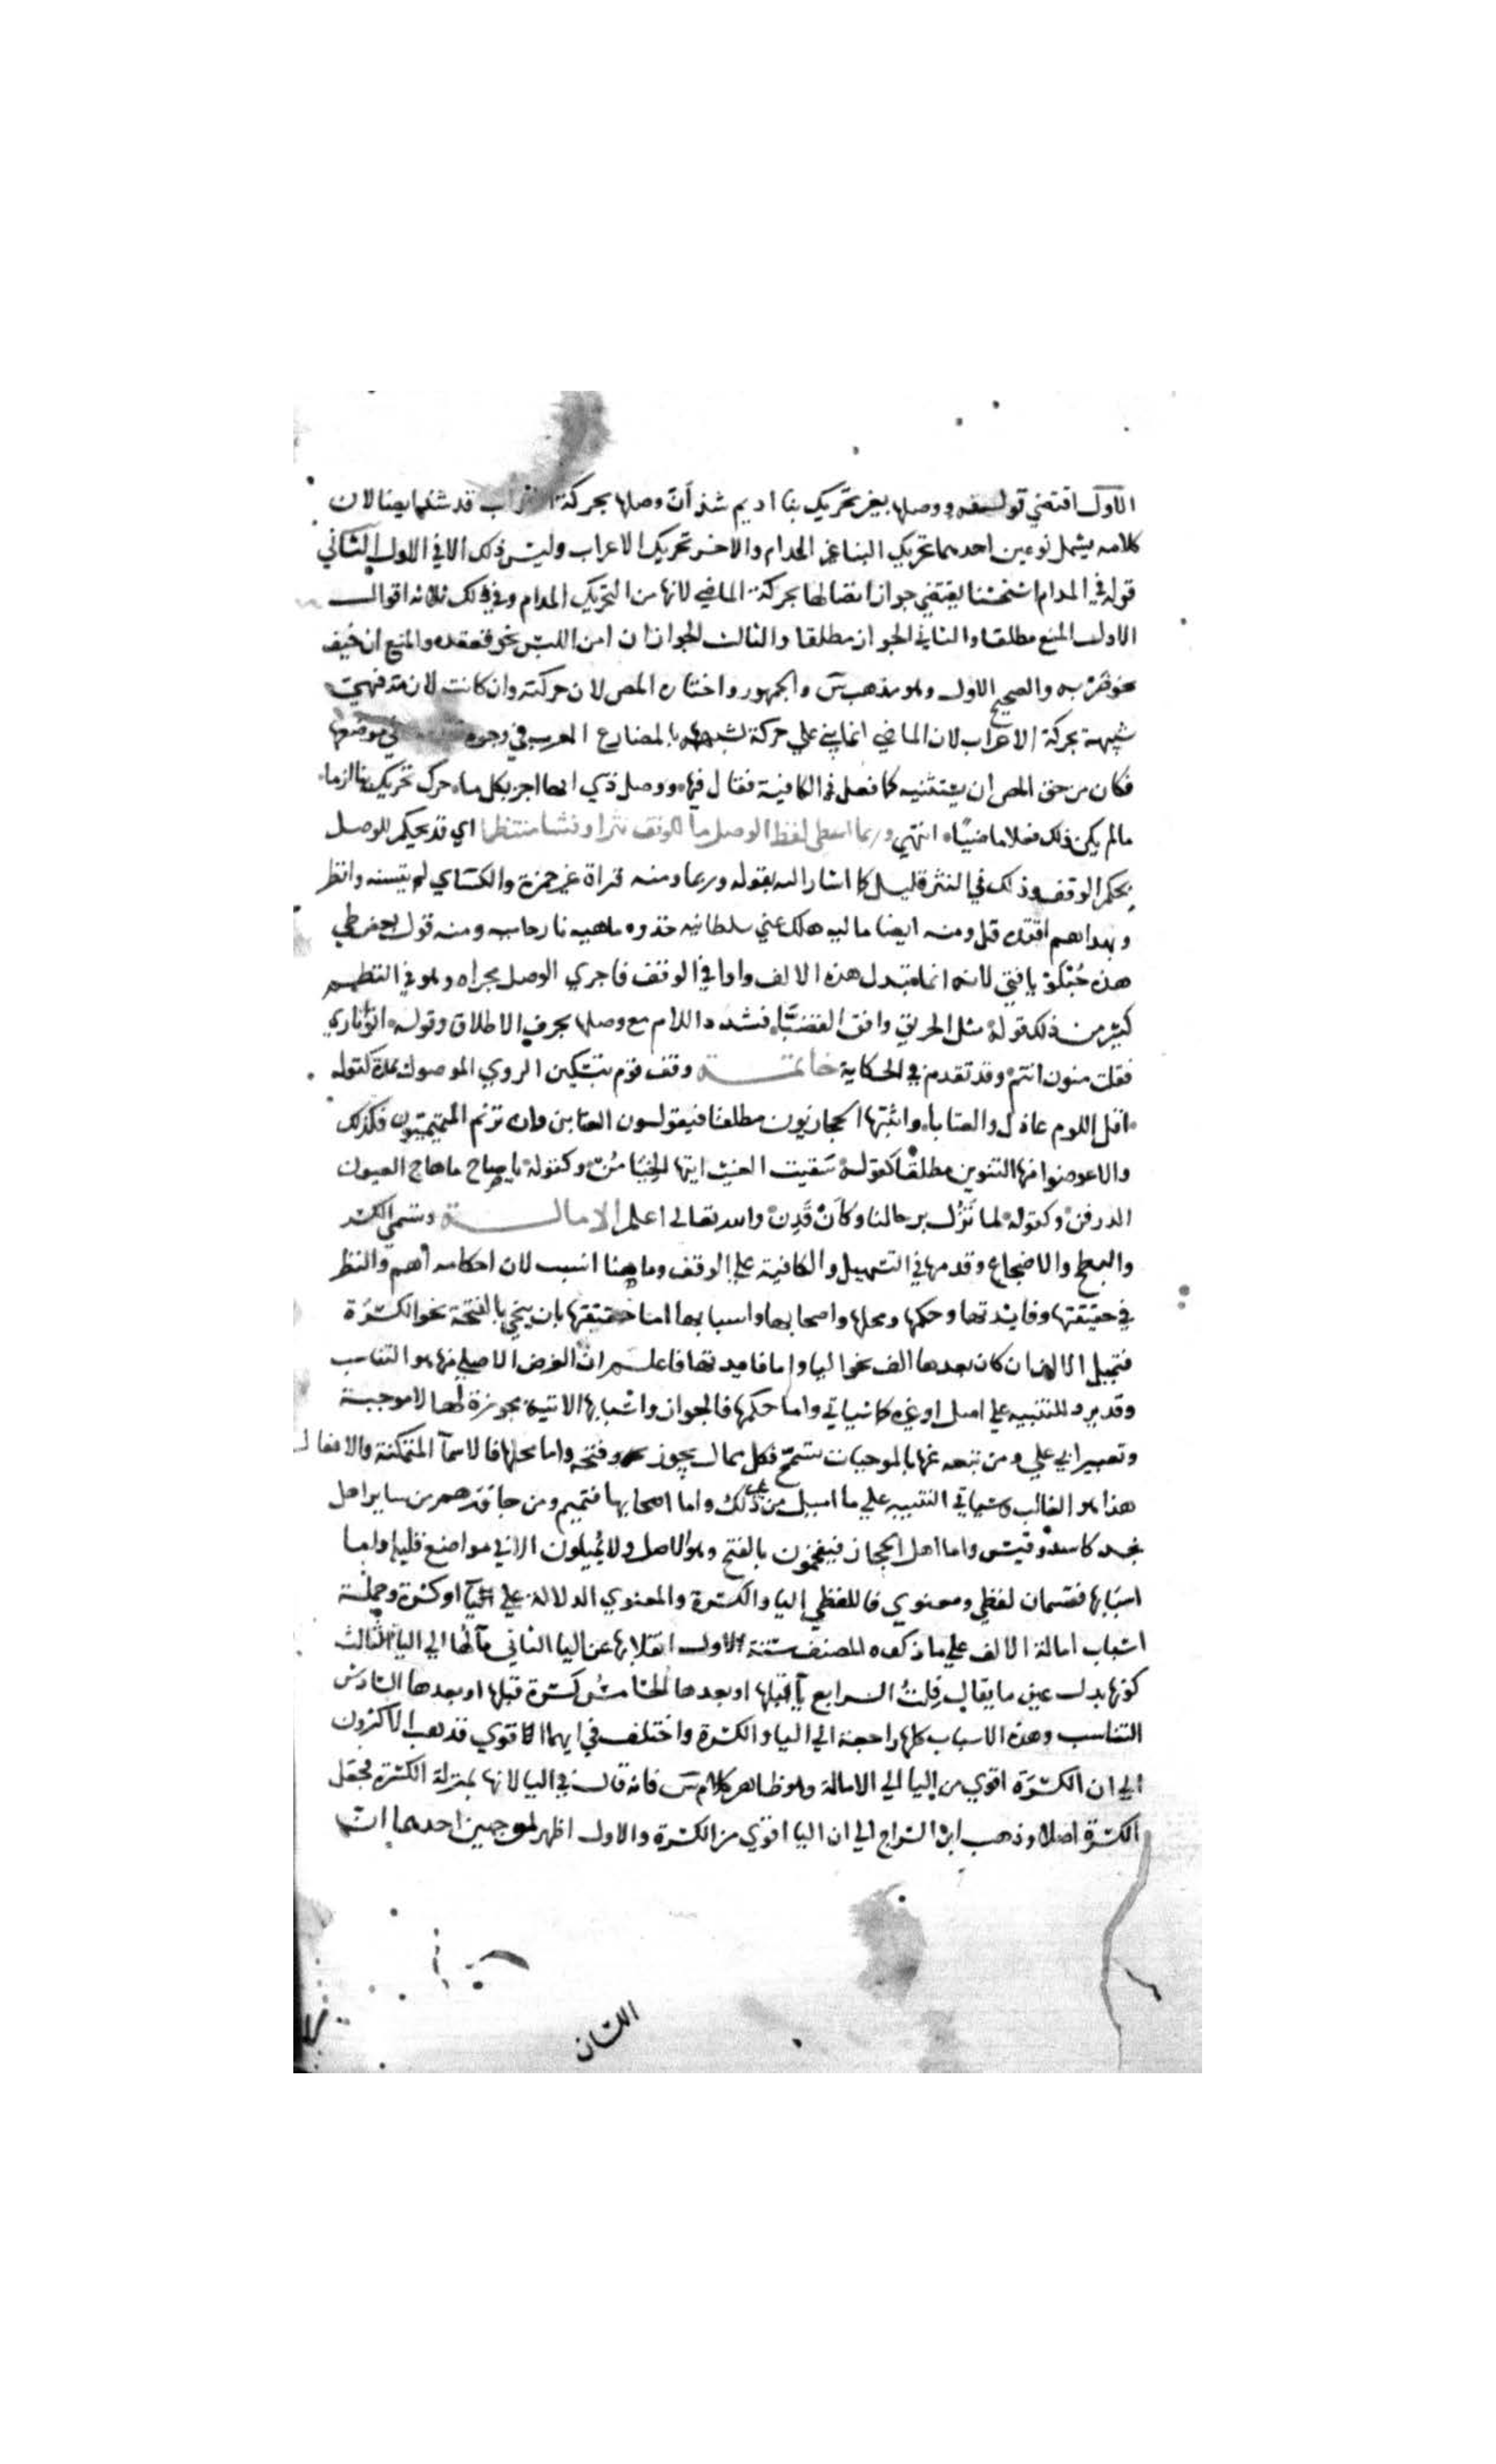 الاول اقتضي قوله ووصلها بغير تحريك بنا اديم شذ ان وصلها بحركة الاعراب قد شذ ايضا لان
كلامه يشمل نوعين احدهما تحريك البنا غير المدام والاخر تحريك الاعراب وليس ذلك الا في الاول الثاني
قوله في المدام استحسنا يقتضي جواز اتصالها بحركة الماضي لانها من التحريك المدام وفي ذلك ثلاثة اقوال
الاول المنع مطلقا والثاني الجواز مطلقا والثالث الجواز ان امن اللبس نحو قعده والمنع ان خيف
نحو ضربه والصحيح الاول وهو مذهب س والجمهور واختاره المص لان حركته وان كانت لازمة فهي
شبيهة بحركة الاعراب لان الماضي انما بني علي حركة لشبهه بالمضارع المعرب في وجوه في موضعها
فكان من حق المص ان يستثنيه كما فعل في الكافية فقال فيها ووصل ذي الها اجز بكل ما حرك تحريك بنا لزما
مالم يكن ذلك فعلا ماضيا انتهي وربما اعطي لفظ الوصل ما للوقف نثرا وفشا منتظما اي قد يحكم للوصل
بحكم الوقف وذلك في النثر قليل كما اشار اليه بقوله وربما ومنه قراة غير حمزة والكسائي لم يتسنه وانظر
وبهداهم اقتده قل ومنه ايضا ماليه هلك عني سلطانيه خذوه ماهيه نار حاميه ومنه قول بعض طي
هذه حبلو يا فتي لانه انما تبدل هذه الالف واوا في الوقف فاجري الوصل مجراه وهو في النظم
كثير من ذلك قوله مثل الحريق وافق القصبا فشدد اللام مع وصلها بحرف الاطلاق وقوله اتوا ناري
فقلت منون انتم وقد تقدم في الحكاية خاتمة وقف قوم بتسكين الروي الموصول بمدة كقوله
اقلي اللوم عاذل والعتاب واثبتها الحجازيون مطلقا فيقولون العتابن وان ترنم التميميون فكذلك
والا عوضوا منها التنوين مطلقا كقوله سقيت الغيث ايتها الخيامن وكقوله يا صاح ما هاج العيون
الذرفن وكقوله لما تزل برحالنا وكان قدن والله تعالي اعلم الامالة وتسمي الكسر
والبطح والاضجاع وقدمها في التسهيل والكافية علي الوقف وما هنا انسب لان احكامه اهم والنظر
في حقيقتها وفايدتها وحكمها ومحلها واصحابها واسبابها اما حقيقتها بان ينحي بالفتحة نحو الكسرة
فتميل الالف ان كان بعدها الف نحو اليا واما فايدتها فاعلم ان الغرض الاصلي منها هو التناسب
وقد يرد للتنبيه علي اصل او غيره كما سياتي واما حكمها فالجواز واسبابها الاتية مجوزة لها لا موجبة
وتعبير ابي علي ومن تبعه عنها بالموجبات تسمح فكل ممال يجوز فتحه واما محلها فالاسما المتمكنة والافعال
هذا هو الغالب وسياتي التنبيه علي ما اميل من غير ذلك واما اصحابها فتميم ومن جاورهم من ساير اهل
نجد كاسد وقيس واما اهل الحجاز فيفخمون بالفتح وهو الاصل ولا يميلون الا في مواضع قليلة واما
اسبابها فقسمان لفظي ومعنوي فاللفظي اليا والكسرة والمعنوي الدلالة علي اليا او كسرة وجملة
اسباب امالة الالف علي ما ذكره المصنف ستة الاول انقلابها عن اليا الثاني مآلها الي اليا الثالث
كونها بدل عين ما يقال فلت الرابع يا قبلها او بعدها الخامس كسرة قبلها او بعدها السادس
التناسب وهذه الاسباب كلها راجعة الي اليا والكسرة واختلف في ايهما الاقوي فذهب الاكثرون
الي ان الكسرة اقوي من اليا الي الامالة وهو ظاهر كلام س فانه قال في اليا لانها بمنزلة الكسرة فجعل
الكسرة اصلا وذهب ابن السراج الي ان اليا اقوي من الكسرة والاول اظهر لوجهين احدهما ان
اللسان